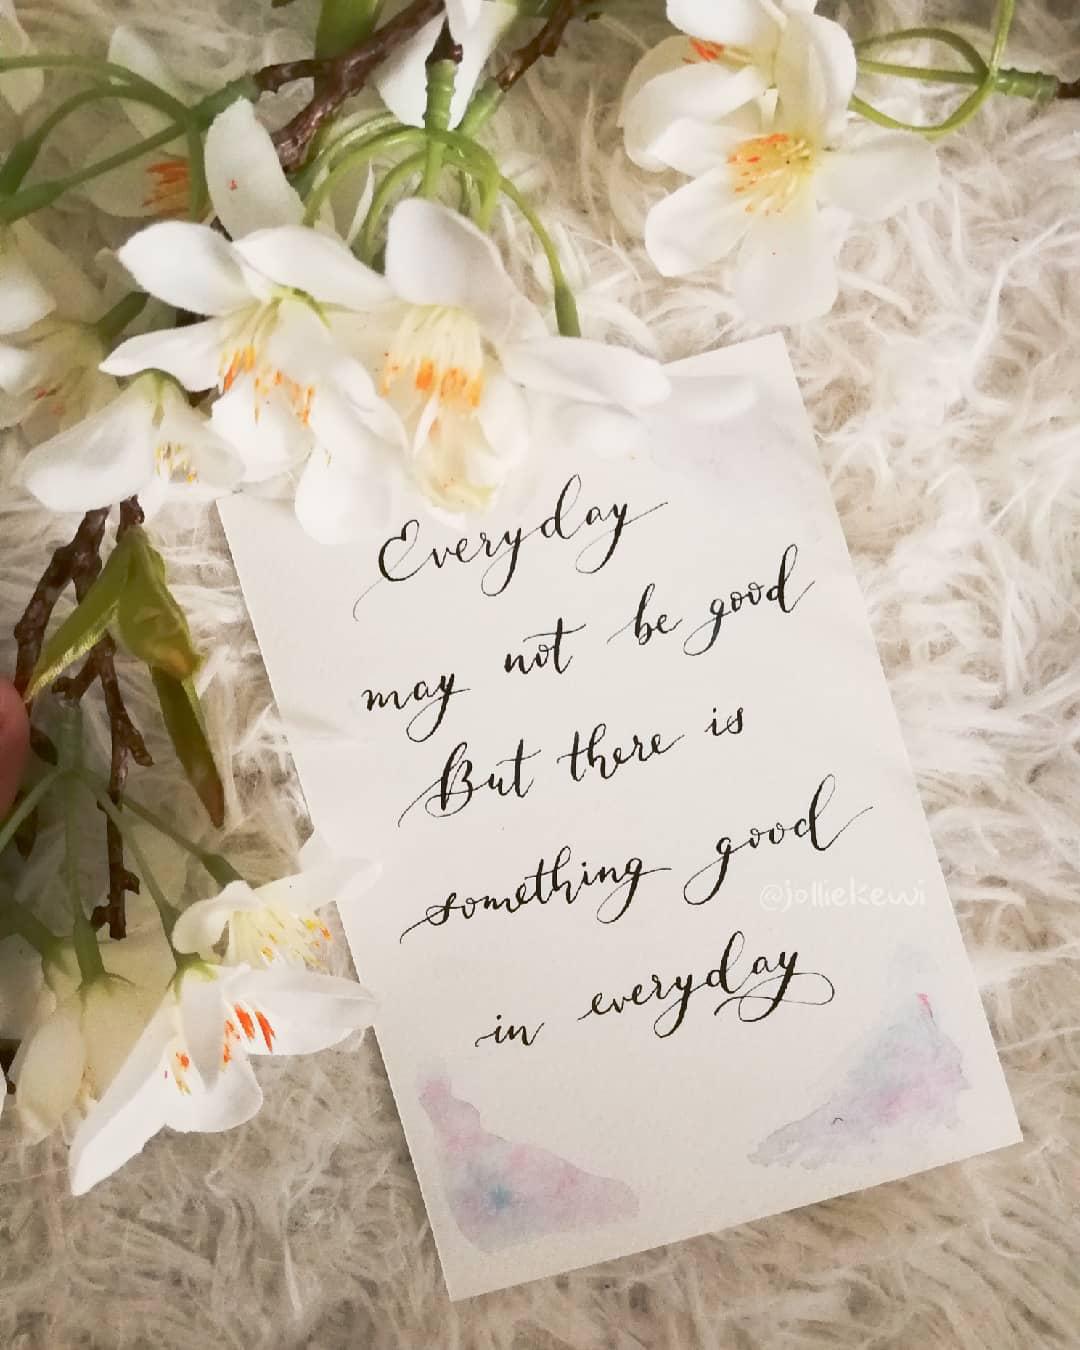 Everyday
may not be good
But there is
something good
@jolliekewi
in everyday